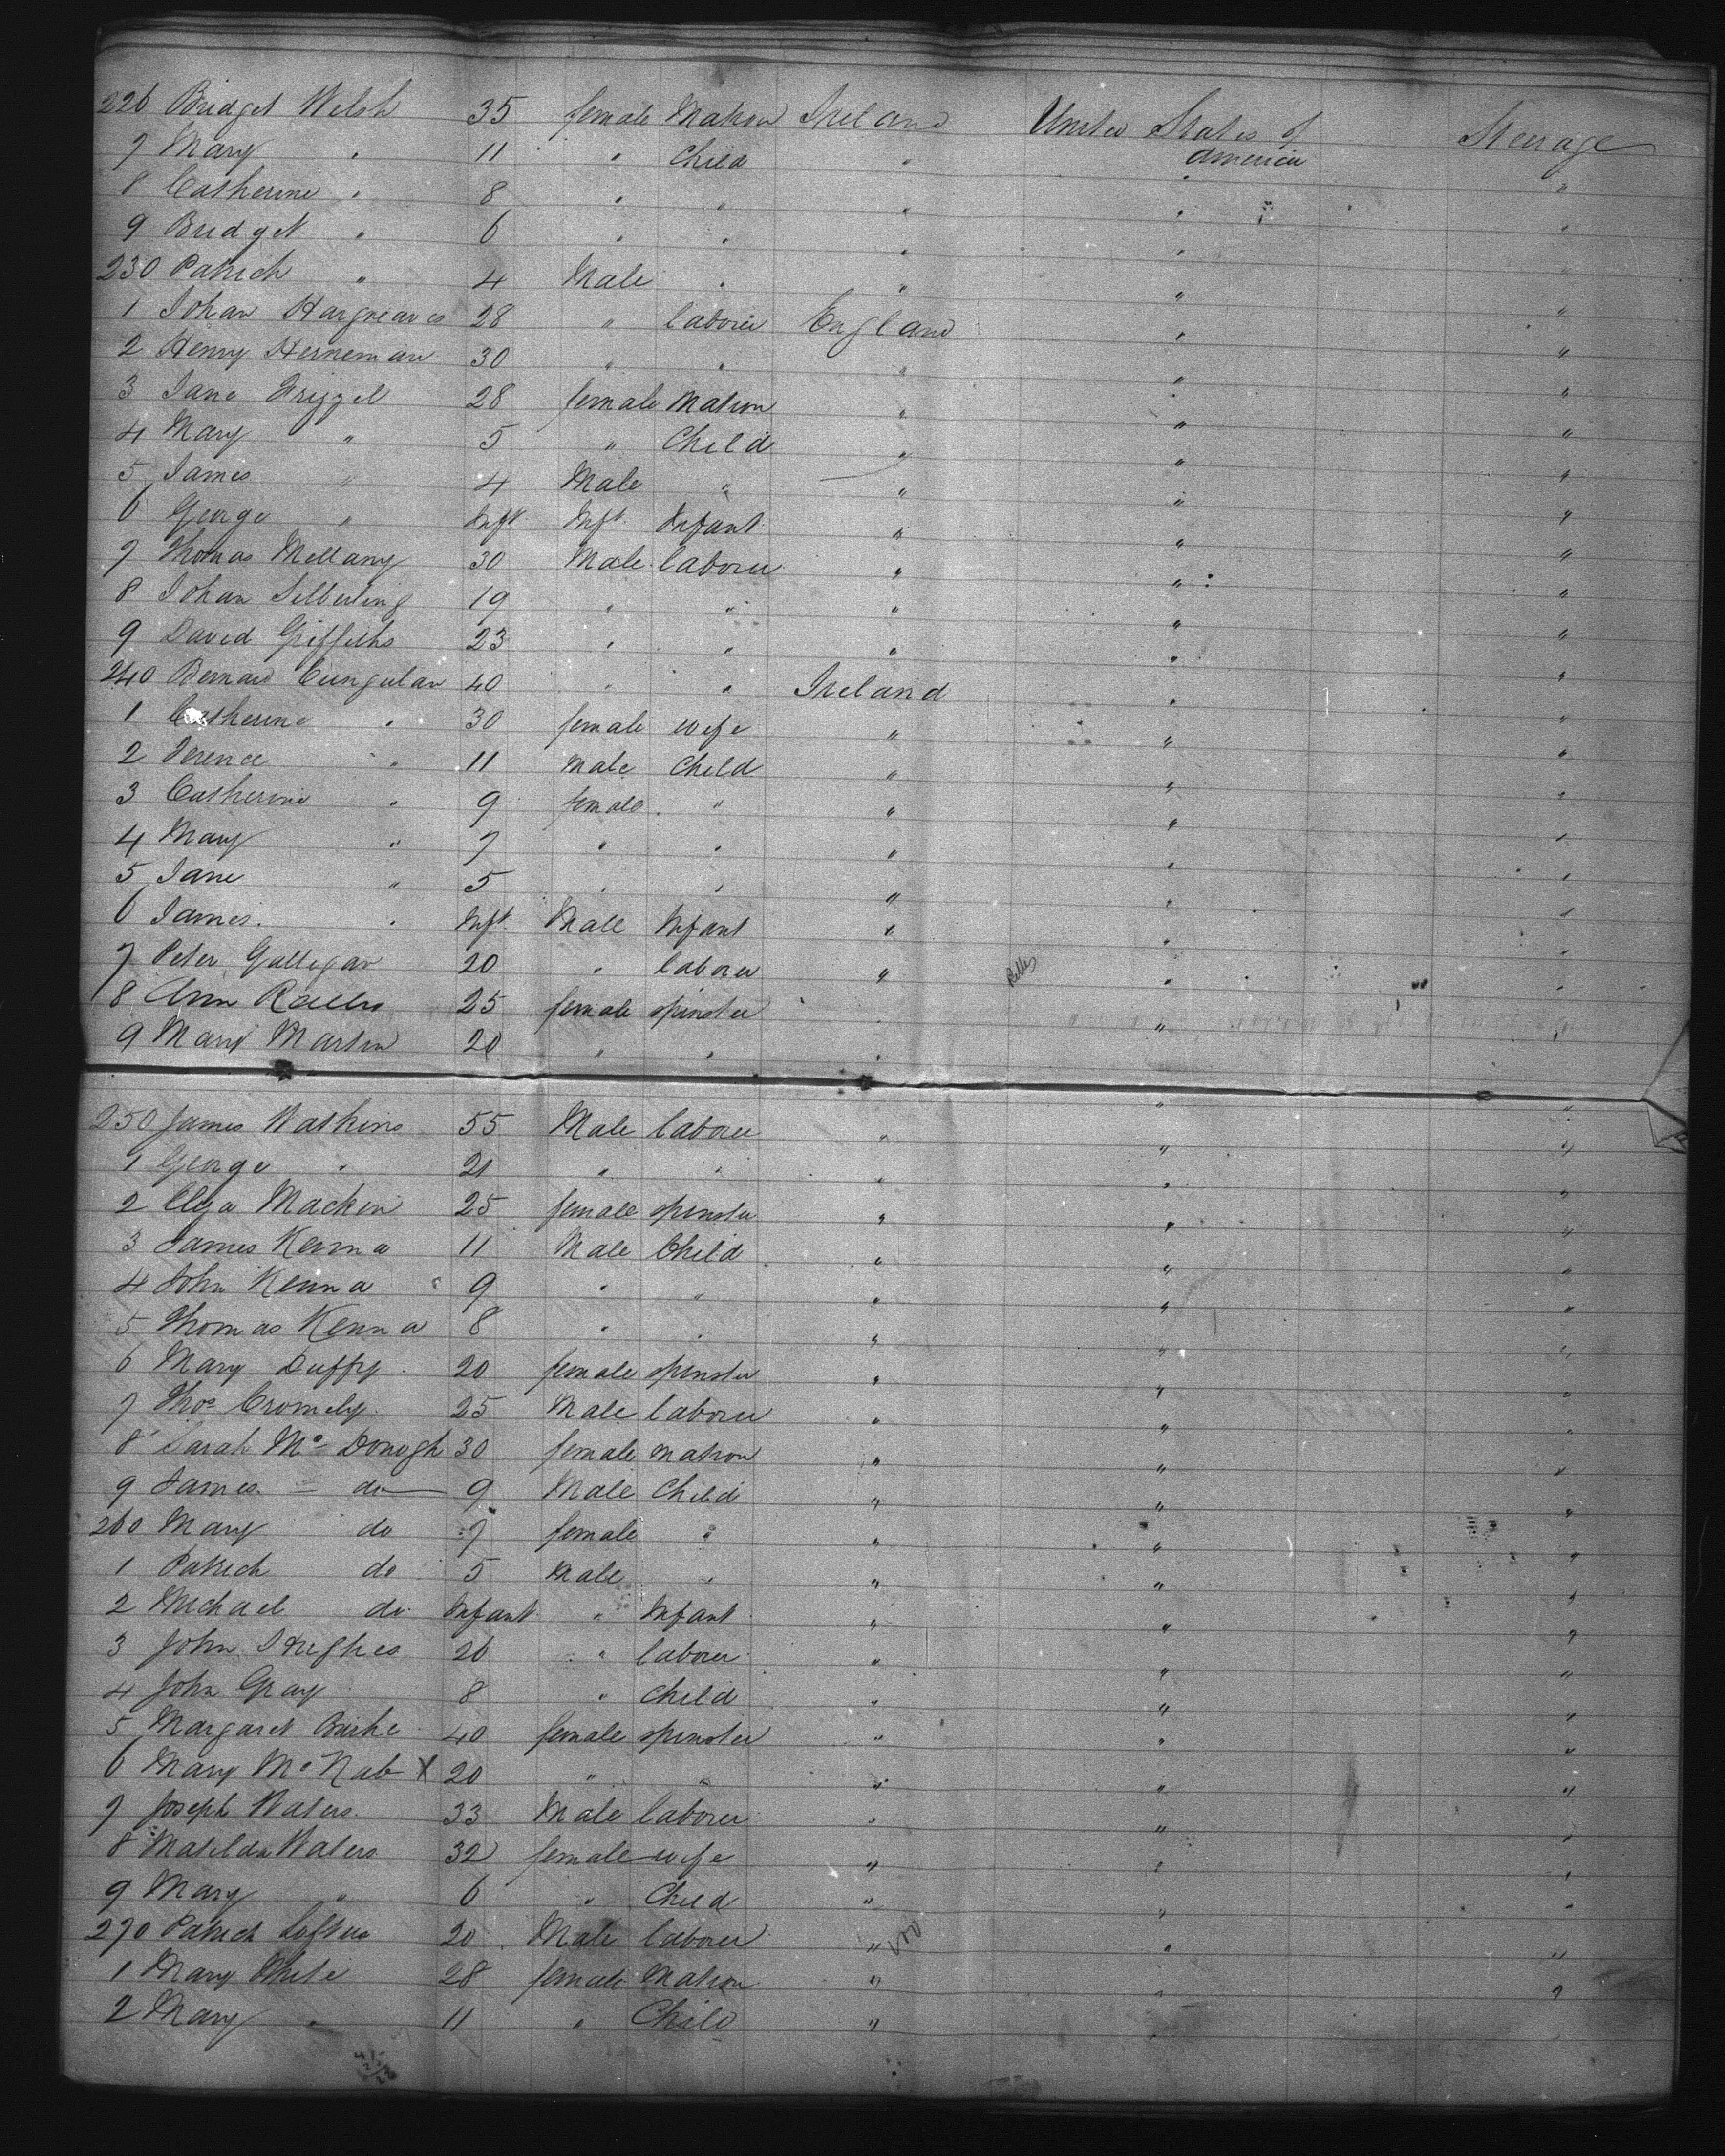 226 Bridget Welsh 35 female Matron Ireland United States of America Steerage
7 Mary " 11 " Child " " "
8 Catherine " 8 " " " " "
9 Bridget " 6 " " " " "
230 Patrick " 4 Male " " " "
1 Johan Hargreaves 28 " laborer England " "
2 Henry Herneman 30 " " " " "
3 Jane Frizzel 28 female Matron " " "
4 Mary " 5 " Child " " "
5 James " 4 Male " " " "
6 George " Inft Inft. Infant " " "
7 Thomas Mellany 30 Male laborer " " "
8 Johan Silberling 19 " " " " "
9 David Griffiths 23 " " " " "
240 Bernard Cungulan 40 " " Ireland " "
1 Catherine " 30 female wife " " "
2 Terence " 11 Male Child " " "
3 Catherine " 9 female " " " "
4 Mary " 7 " " " " "
5 Jane " 5 " " " " "
6 James " Inft. Male Infant " " "
7 Peter Galligan 20 " laborer " " "
8 Ann 25 female spinster " " "
9 Mary Martin 20 " " " " "
250 James Watkins 55 Male laborer " " "
1 George " 21 " " " " "
2 Eliza Mackin 25 female spinster " " "
3 James Kenna 11 Male Child " " "
4 John Kenna 9 " " " " "
5 Thomas Kenna 8 " " " " "
6 Mary Duffy 20 female spinster " " "
7 Thos Cromely 25 Male laborer " " "
8 Sarah Mc Donogh 30 female Matron " " "
9 James do 9 Male Child " " "
260 Mary do 7 female " " " "
1 Patrick do 5 Male " " " "
2 Michael do Infant " Infant " " "
3 John Hughes 26 " laborer " " "
4 John Gray 8 " Child " " "
5 Margaret Burke 40 female spinster " " "
6 Mary Mc Nab X 20 " " " " "
7 Joseph Waters 33 Male laborer " " "
8 Matilda Waters 32 female wife " " "
9 Mary " 6 " Child " " "
270 Patrick Loftus 20 Male laborer " " "
1 Mary White 28 female Matron " " "
2 Mary " 11 " Child " "